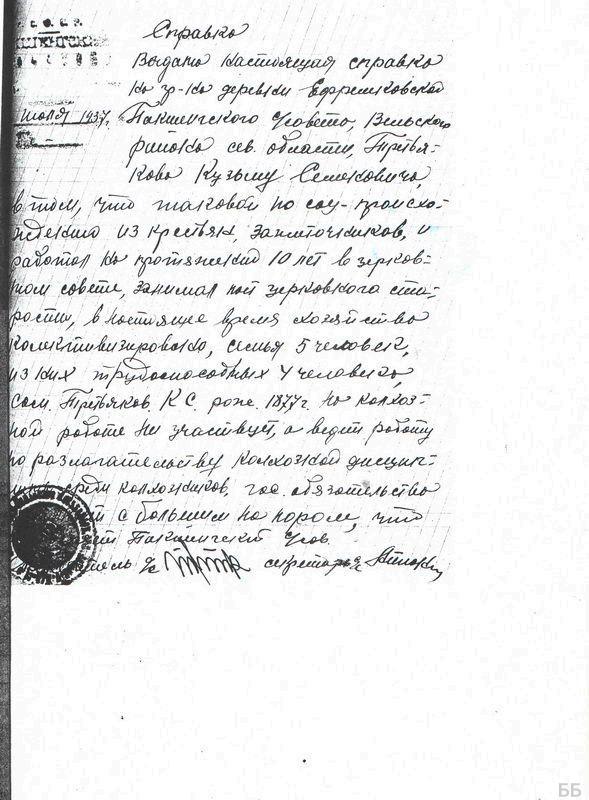 Справка
Выдана настоящая справка
на гр-на деревни Ефремковской
июля 1937. Пакшенгского с/совета, Вельского
района сев. области, Третья-
кова Кузьму Семеновича,
в том, что таковой по соц-проис хо-
ждению из крестьян, зажиточников, и
работал на протяжений 10 лет в церков-
ном совете, занимал пост церковного ста-
росты, в настоящее время хозяйство
колективизировано, семья 5 человек,
из них трудоспособных 4 человека,
сам. Третьяков К С. рожд. 1877 г на колхоз-
ной работе не участвует, а ведет работу
по разлагательству колхозной дисцип-
среди колхозников, гос. обязательство
с большим на пором, что
Пакшенгский с/сов
секретарь с/с
ББ